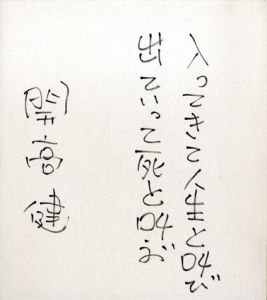 入ってきて人生と叫び
出ていって死と叫ぶ
開高健